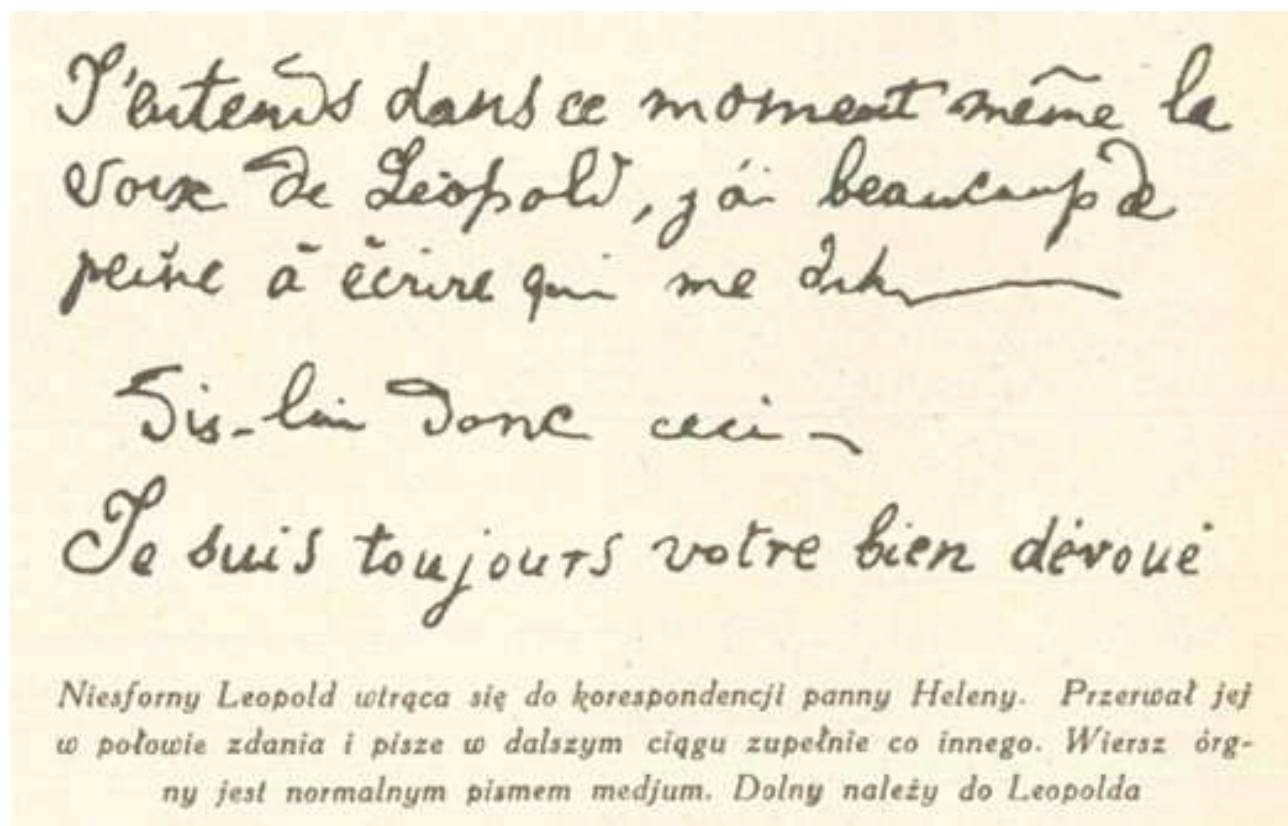 J'entends dans ce moment même la
voix de Léopold, j'ai beaucoup de
peine à écrire qui me dit
Dis-lui donc ceci -
Je suis toujours votre bien dévoué
Niesforny Leopold wtrąca się do korespondencji panny Heleny. Przerwał jej
w połowie zdania i pisze w dalszym ciągu zupełnie co innego. Wiersz órg-
ny jest normalnym pismem medjum. Dolny należy do Leopolda